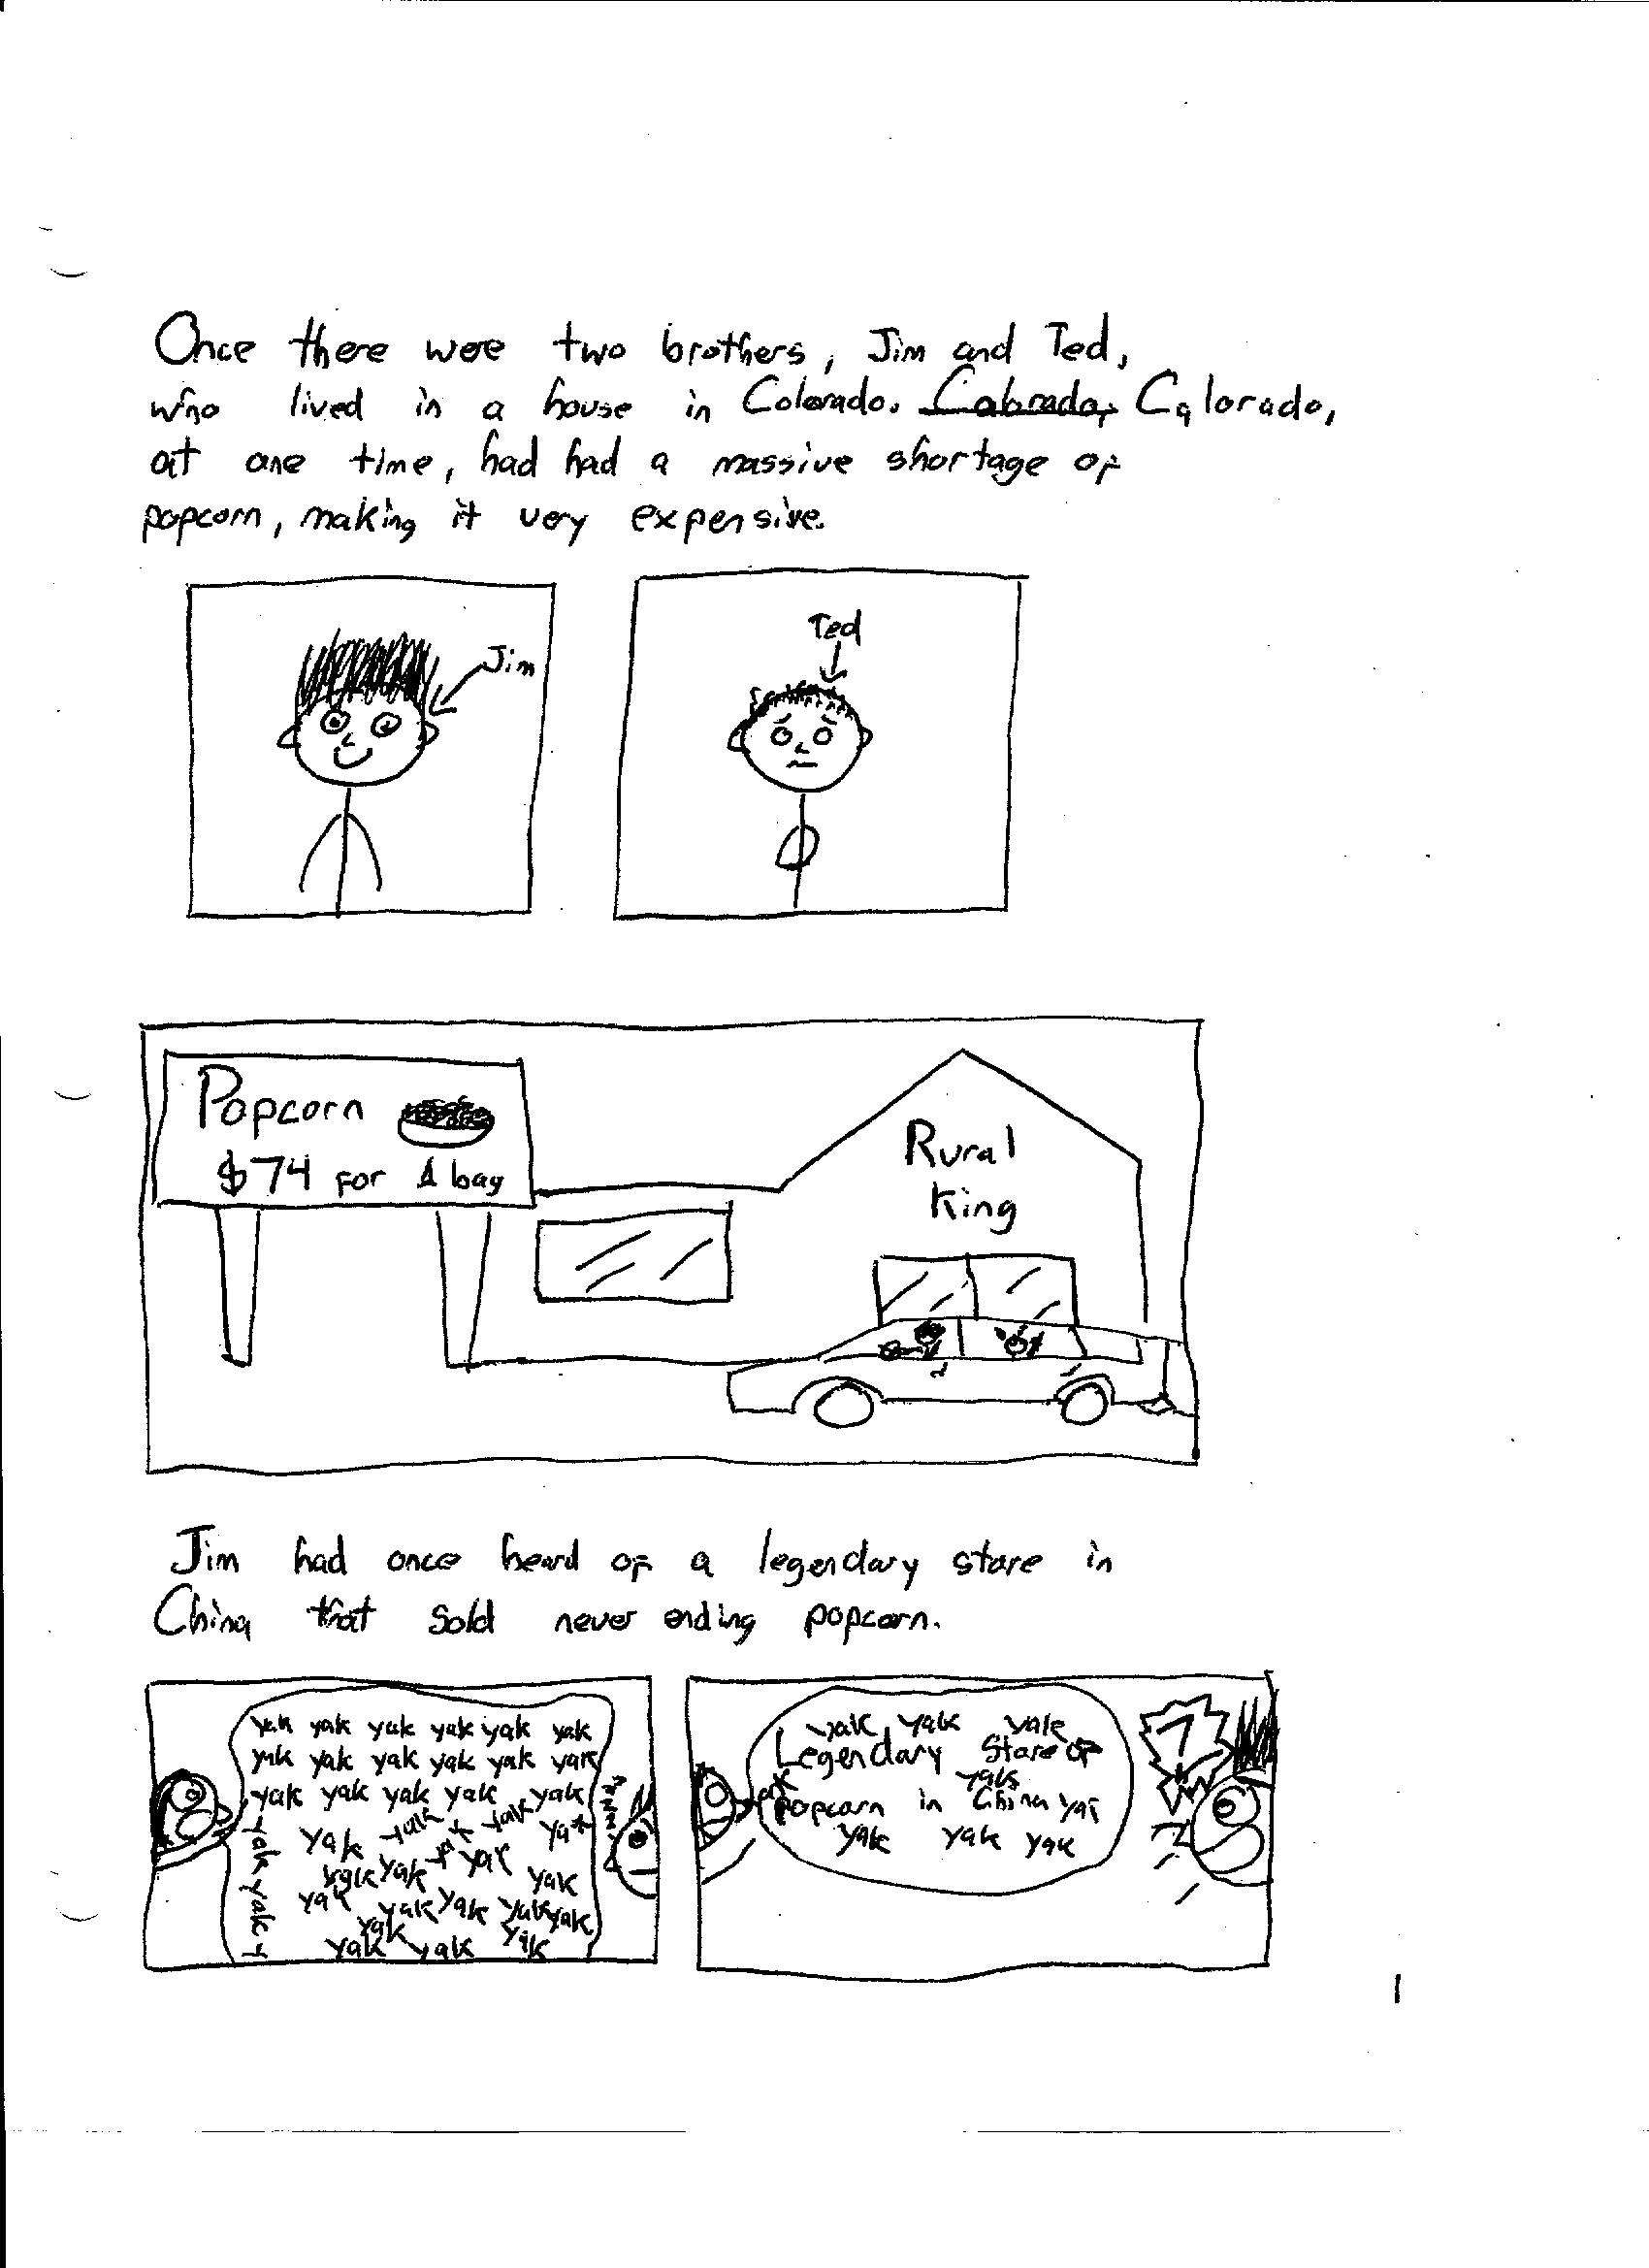 Once there were two brothers, Jim and Ted,
who lived in a house in Colorado. Colorado, Colorado,
at one time, had had a massive shortage of
popcorn, making it very expensive.
Jim
Ted
Popcorn
$74 for 1 bag
Rural
King
Jim had once heard of a legendary store in
China that sold never ending popcorn.
yak yak yak yak yak yak
yak yak yak yak yak yak
yak yak yak yak yak
yak yak yak yak yak
yak yak yak yak
yak yak yak yak yak
yak yak yak yak
yak yak y
yak yak yak
Legendary Store of
yak
popcorn in China yak
yak yak yak
1